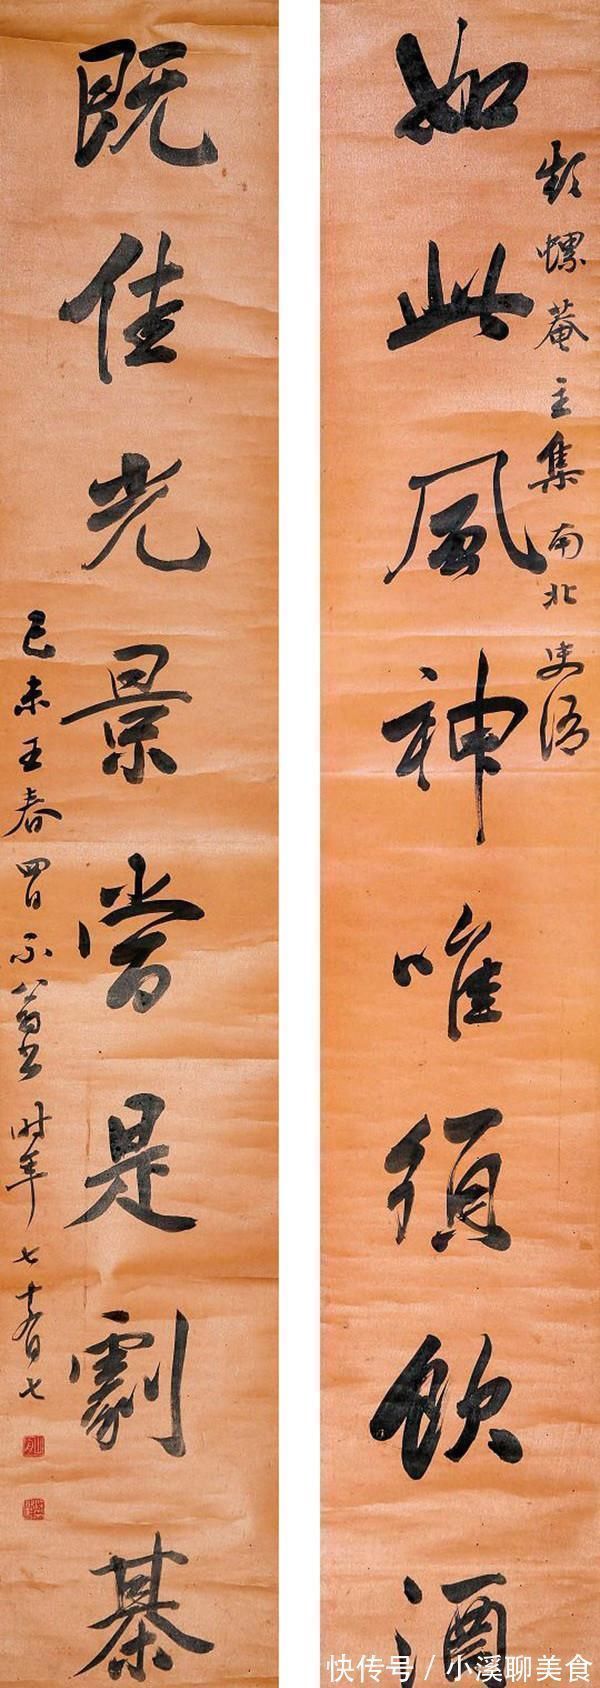 如此風神唯須飲酒
螺菴主集南北史語
既佳光景當是劇棊
己未王春四日 翁書時年七十有七
快传号/小溪聊美食